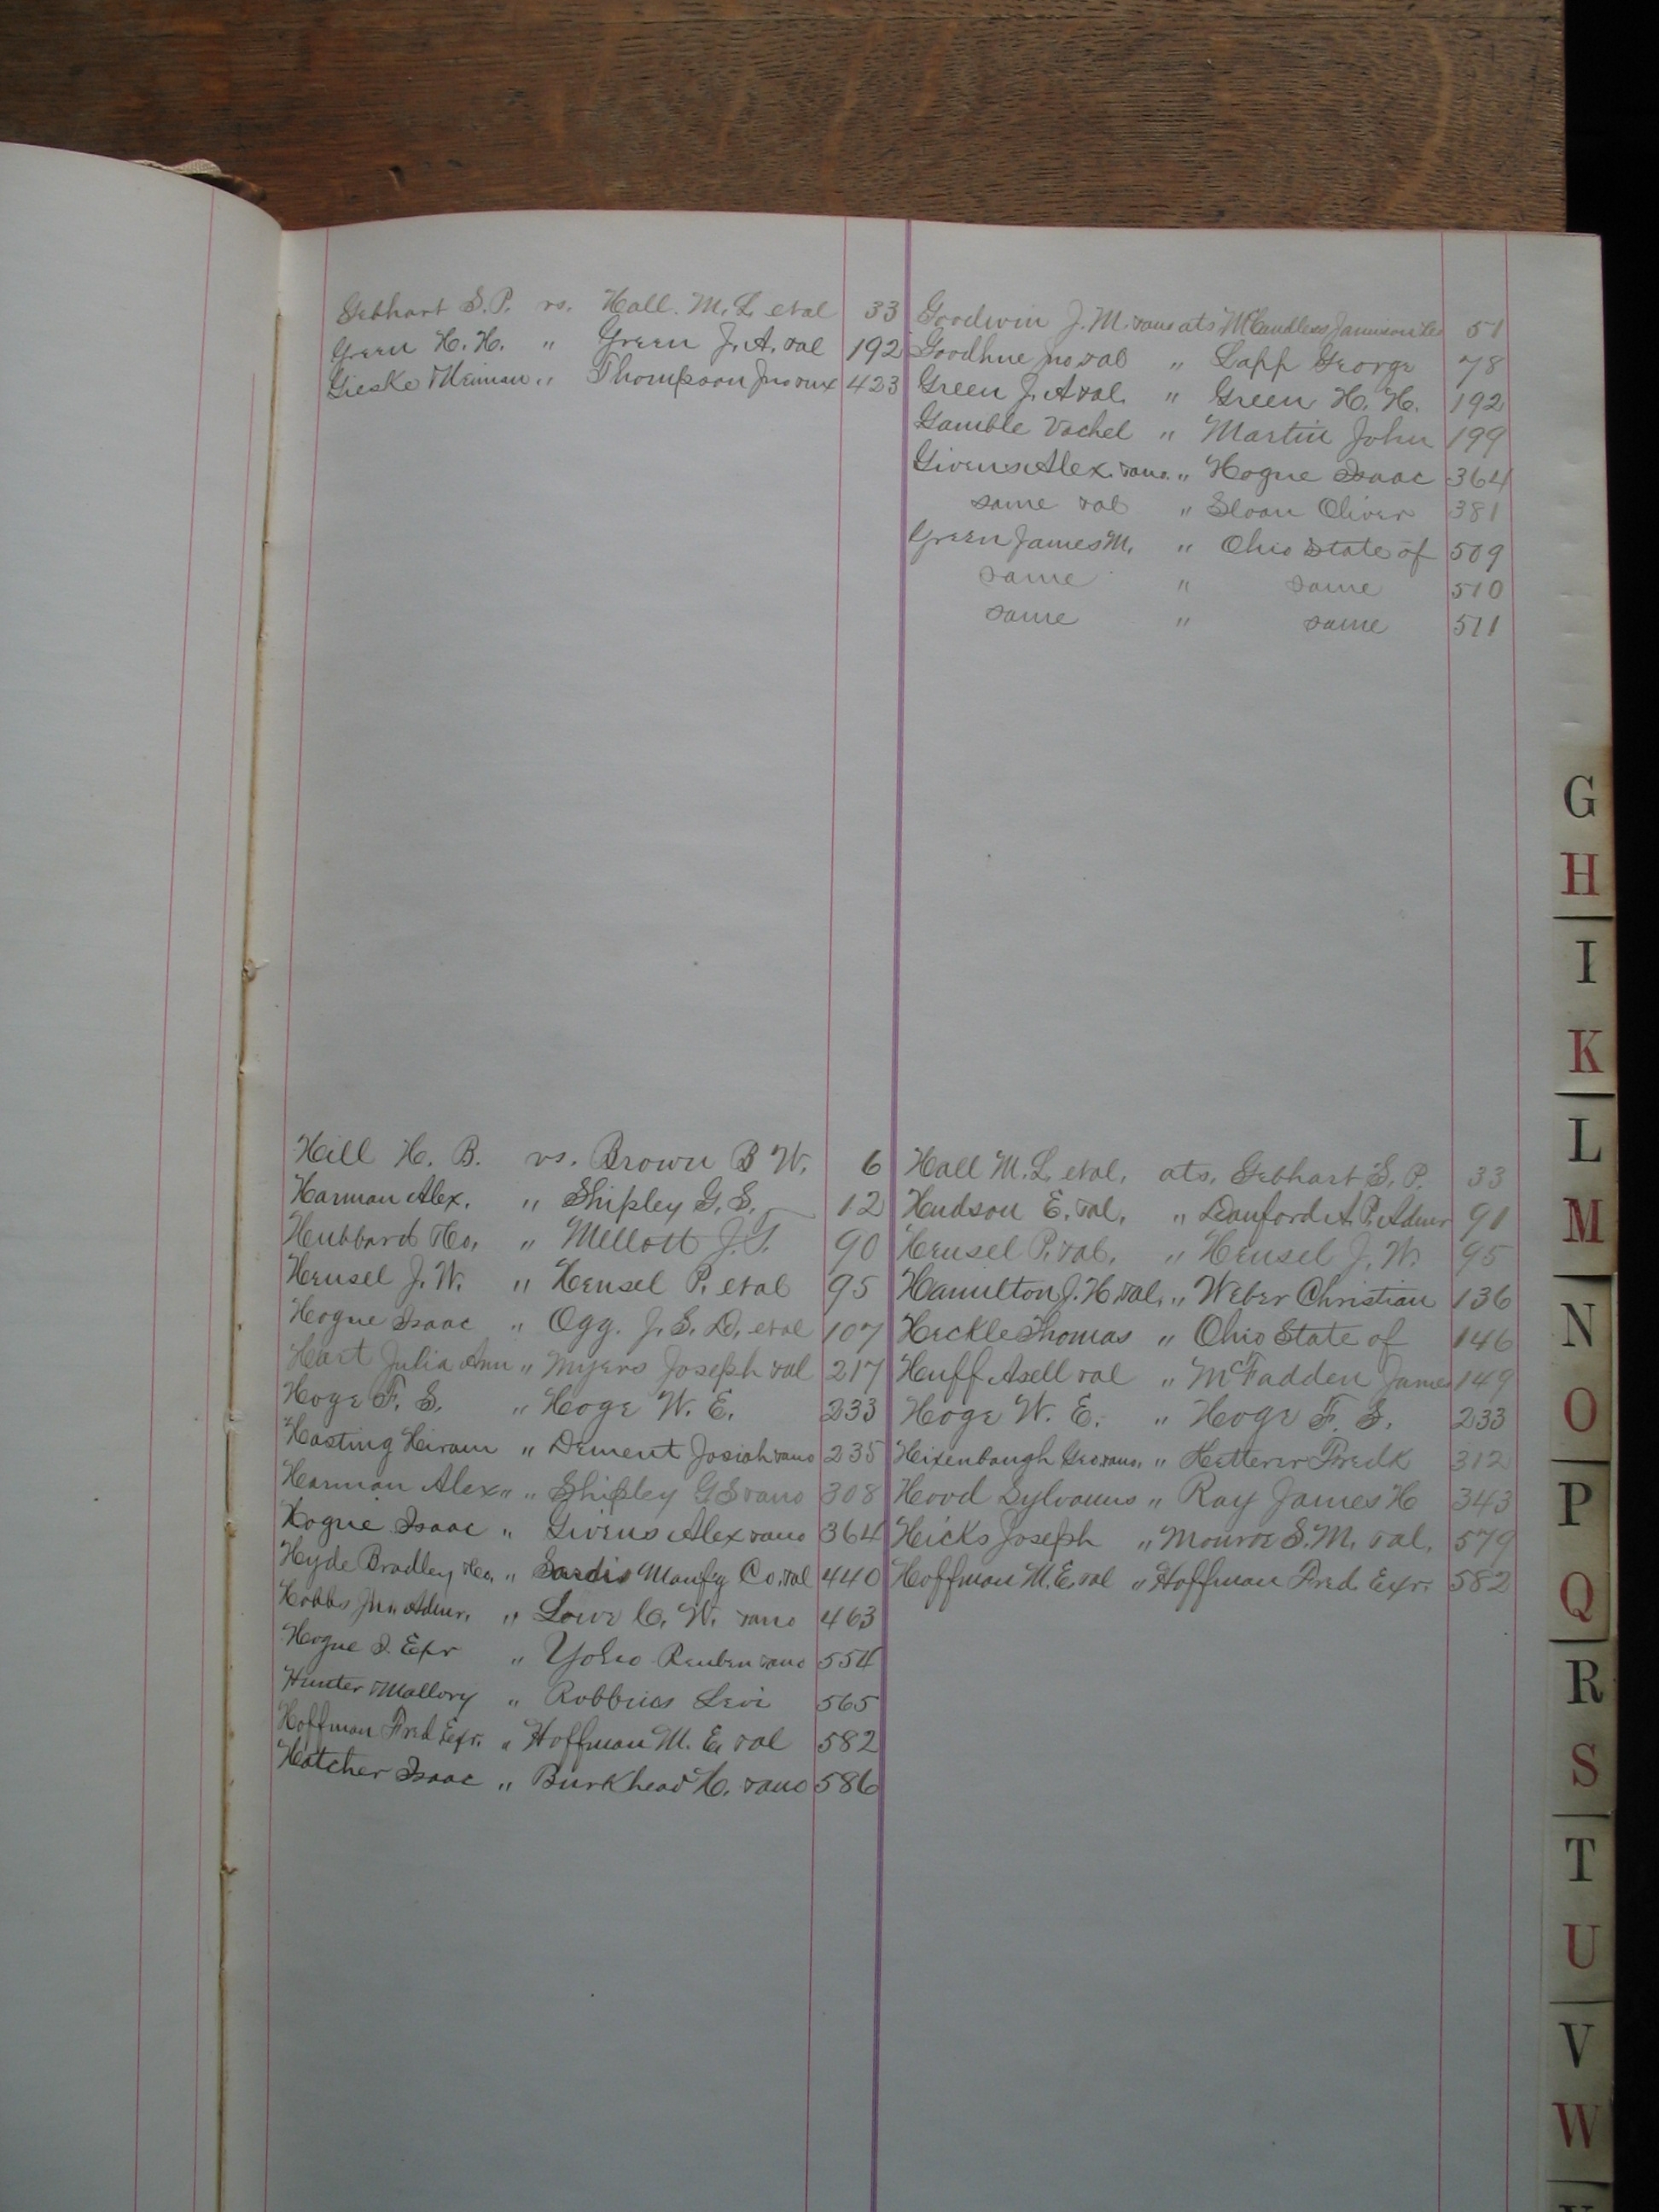 Gebhart S.P. vs. Hall. M. L. et al 33
Green H. H. " Green J. A. et al 192
Gieske & " Thompson Jno & ux 423
Goodwin J. M. & ano ats McCandless Jamison & Co 51
Goodhue Jno et al " Lapp George 78
Green J. A et al. " Green H. H. 192
Gamble Vachel " Martin John 199
Givens Alex. & ano. " Hogue Isaac 364
same et al " Sloan Oliver 381
Green James M. " Ohio State of 509
same " same 510
same " same 511
Hill H. B. vs. Brown B W. 6
Harman Alex. " Shipley G. S. 12
Hubbard & Co. " Mellott J. T. 90
Hensel J. W. " Hensel P. et al 95
Hogue Isaac " Ogg. J. S. D. et al 107
Hart Julia Ann " Myers Joseph et al 217
Hoge F. S. " Hoge W. E. 233
Hasting Hiram " Dement Josiah & ano 235
Harman Alex " " Shipley G S & ano 308
Hogue Isaac " Givens Alex & ano 364
Hyde Bradley & Co. " Sardis Manfg Co. et al 440
Hobbs Jno Admr. " Lowe C. W. & ano 463
Hogue I. Exr " Yoho Reuben & ano 554
Hunter & Mallory " Robbins Levi 565
Hoffman Fred Exr. " Hoffman M. E. et al 582
Hatcher Isaac " Burkhead H. & ano 586
Hall M. L. et al. ats. Gebhart S. P. 33
Hudson E. et al. " Danford A. P. Admr 91
Hensel P. et al. " Hensel J. W. 95
Hamilton J. H. et al. " Weber Christian 136
Heckle Thomas " Ohio State of 146
Huff Asell et al " McFadden James 149
Hoge W. E. " Hoge F. S. 233
Hixenbaugh Geo & ano. " Hetterer Fredk 312
Hood Sylvanus " Ray James H 343
Hicks Joseph " Monroe S. M. et al. 579
Hoffman M. E. et al " Hoffman Fred. Exr. 582
G
H
I
K
L
M
N
O
P
Q
R
S
T
U
V
W